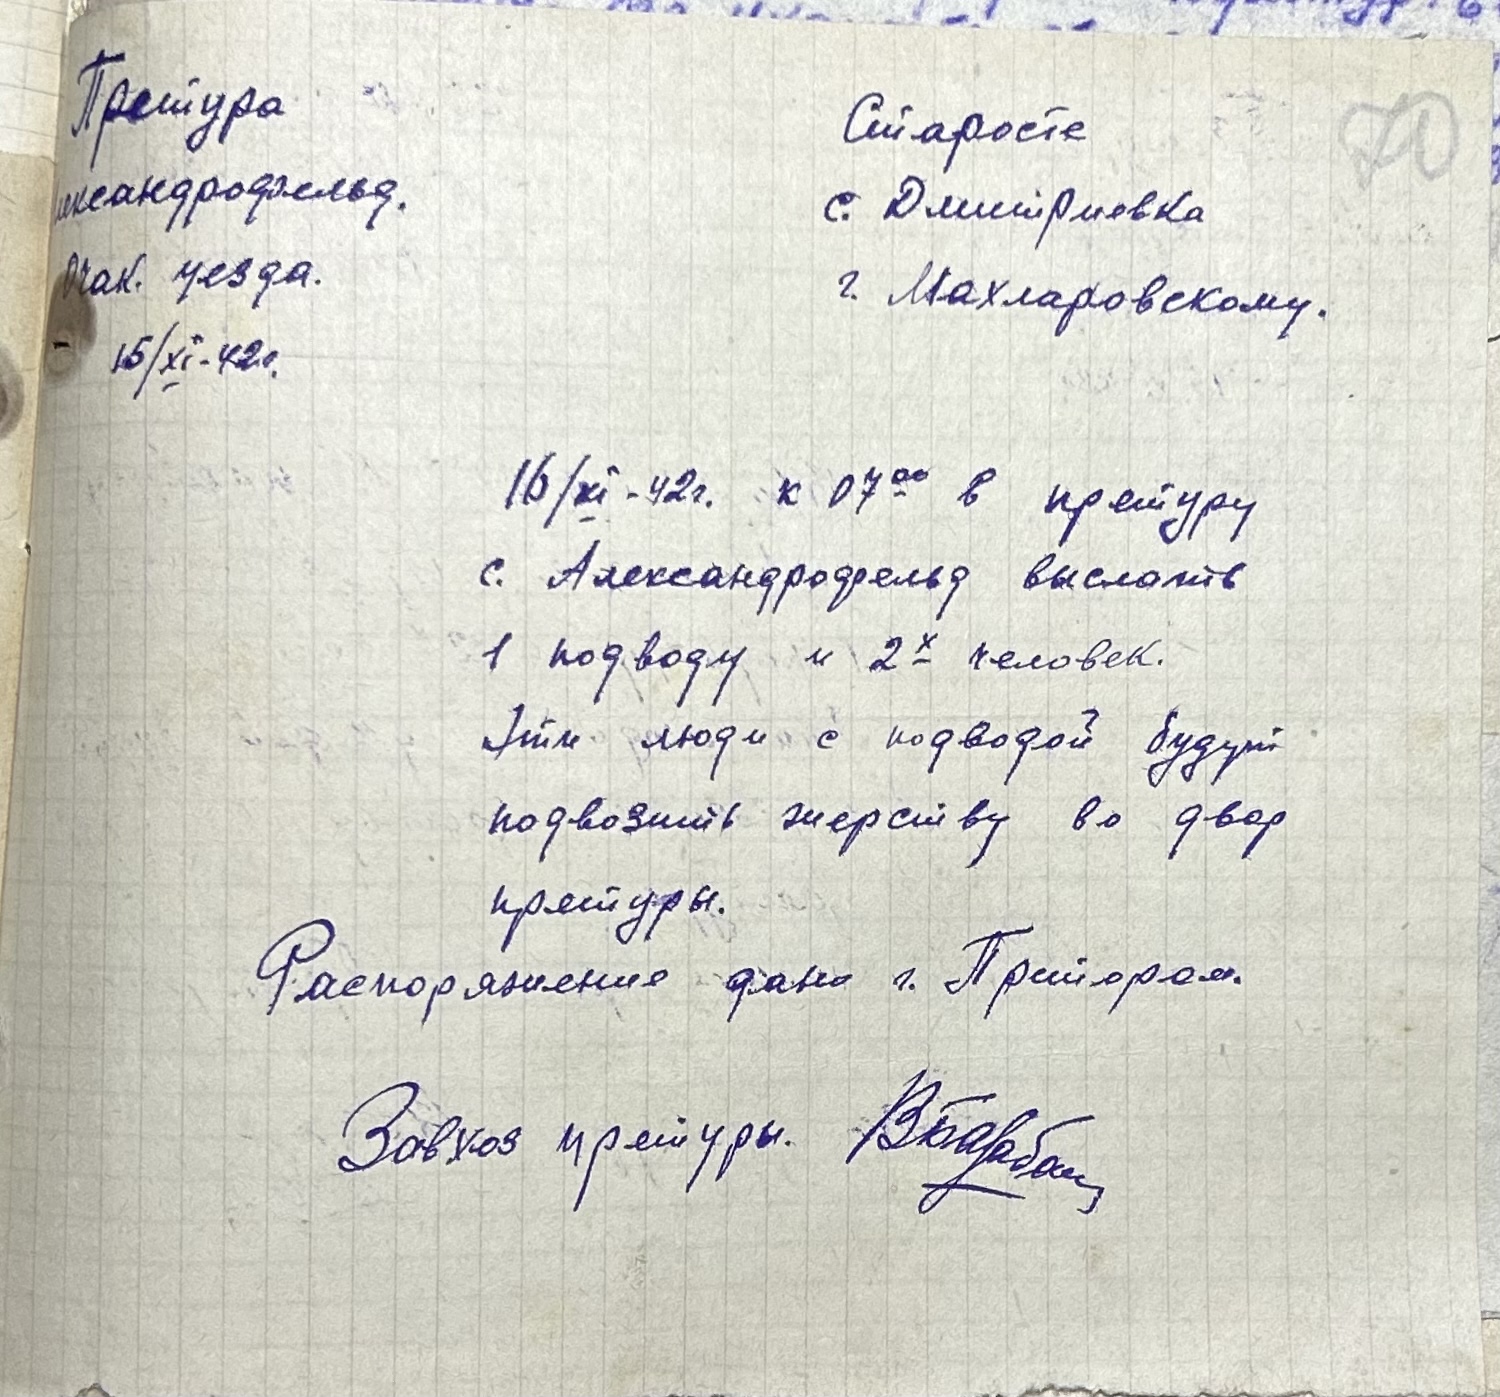 Претура
лександрофельд.
Очак. уезда.
15/XI-42г.
Старосте
с. Дмитриевка
г. Махларовскому.
70
16/XI-42г. к 07⁰⁰ в претуру
с. Александрофельд выслать
1 подводу и 2х человек.
Эти люди с подводой будут
подвозить жерству во двор
претуры.
Распоряжение дано г. Претором.
Завхоз претуры.